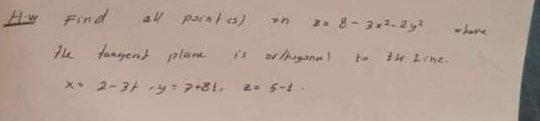 H.W Find all point(s) on z = 8 - 3x² - 2y² where
the tangent plane is orthogonal to the Line.
x = 2 - 3t , y = 7 + 8t , z = 5 - t .